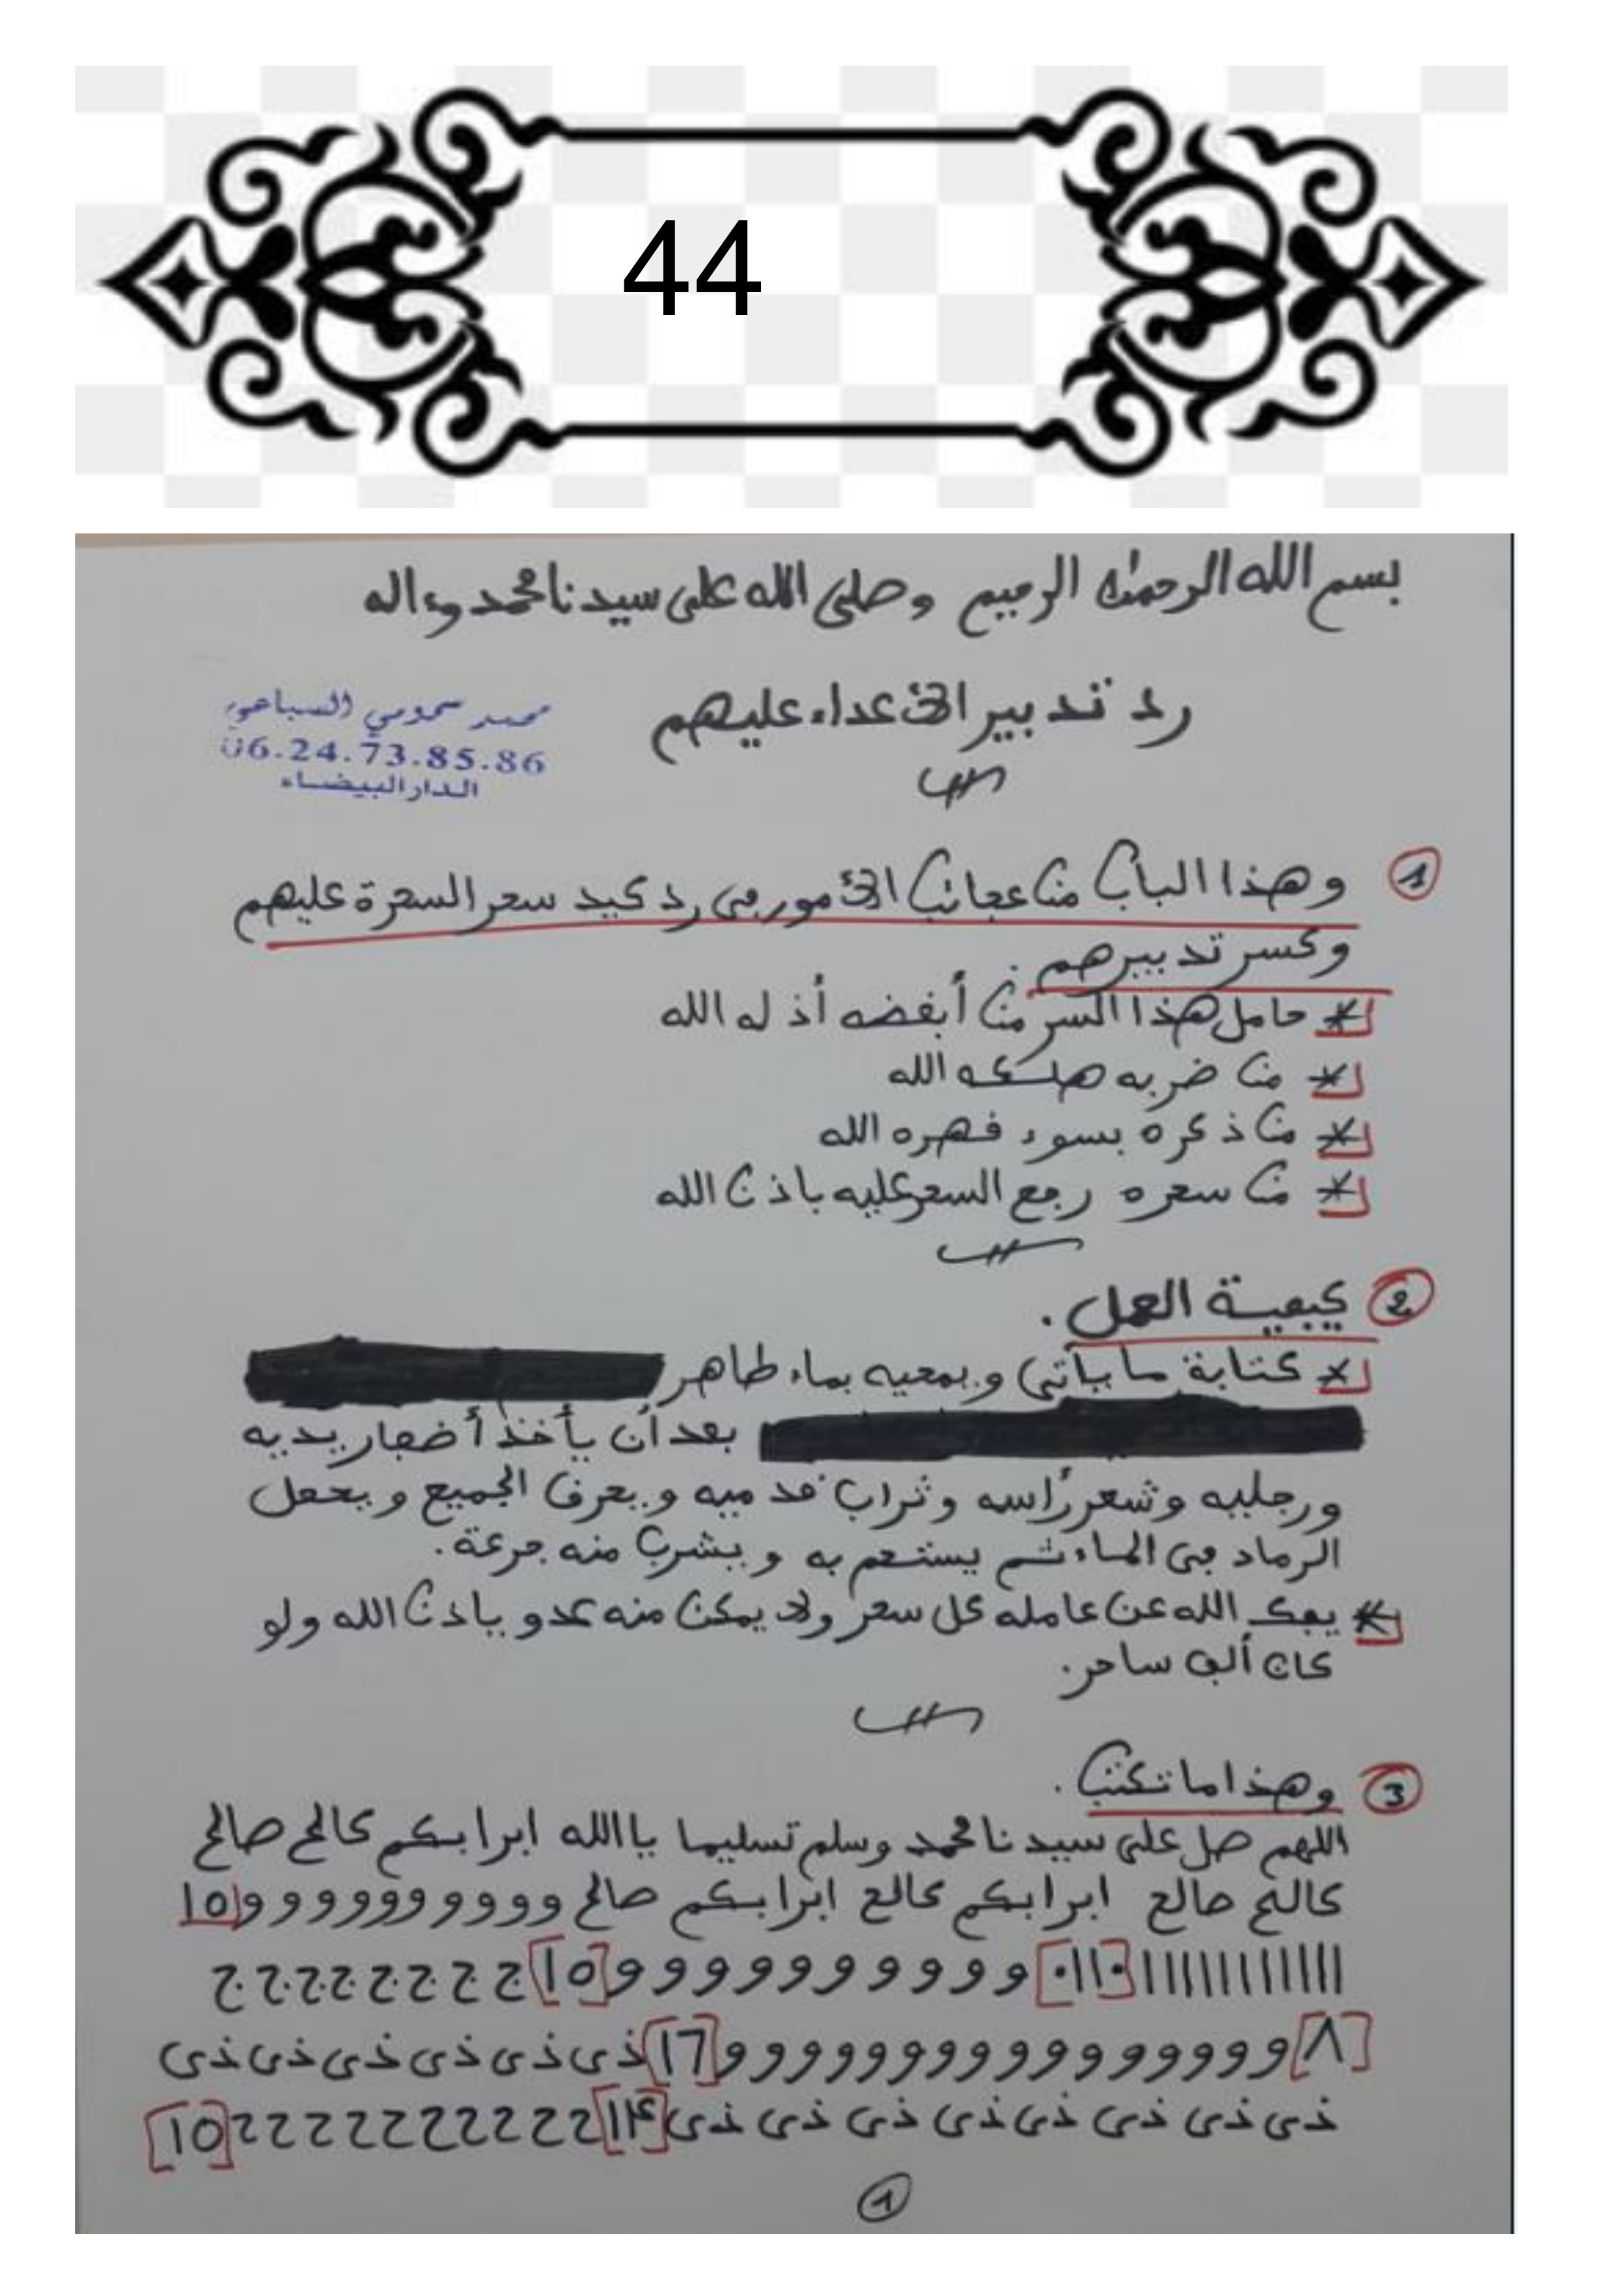 44
بسم الله الرحمن الرحيم وصلى الله على سيدنا محمد وءاله
رد تدبير الاعداء عليهم
محمد سحومي السباعي
06.24.73.85.86
الدار البيضاء
1 وهذا الباب من عجائب الامور في رد كيد سحر السحرة عليهم
وكسر تدبيرهم.
* حامل هذا السر من أبغضه أذله الله
* من ضربه هلكه الله
* من ذكره بسوء قهره الله
* من سحره رجع السحر عليه باذن الله
2 كيفية العمل.
* كتابة ما يأتي ويمحيه بماء طاهر
بعد أن يأخذ أضفار يديه
ورجليه وشعر رأسه وتراب قدميه ويحرق الجميع ويجعل
الرماد في الماء ثم يستحم به ويشرب منه جرعة.
* يفك الله عن عامله كل سحر ولا يمكن منه عدو باذن الله ولو
كان ألف ساحر.
3 وهذا ما تكتب.
اللهم صل على سيدنا محمد وسلم تسليما يا الله ابرابكم كالح صالح
كالح صالع ابرابكم كالع ابرابكم صالح وووووووووو ١٥
ااااااااااااا ٠١١٠ ووووووووووو ١٥ ج ج ج ج ج ج ج ج
٨ وووووووووووووووو ١٦ ذى ذى ذى ذى ذى ذى
ذى ذى ذى ذى ذى ذى ذى ذى ١٤ ح ح ح ح ح ح ح ح ح ح ح ١٥
1